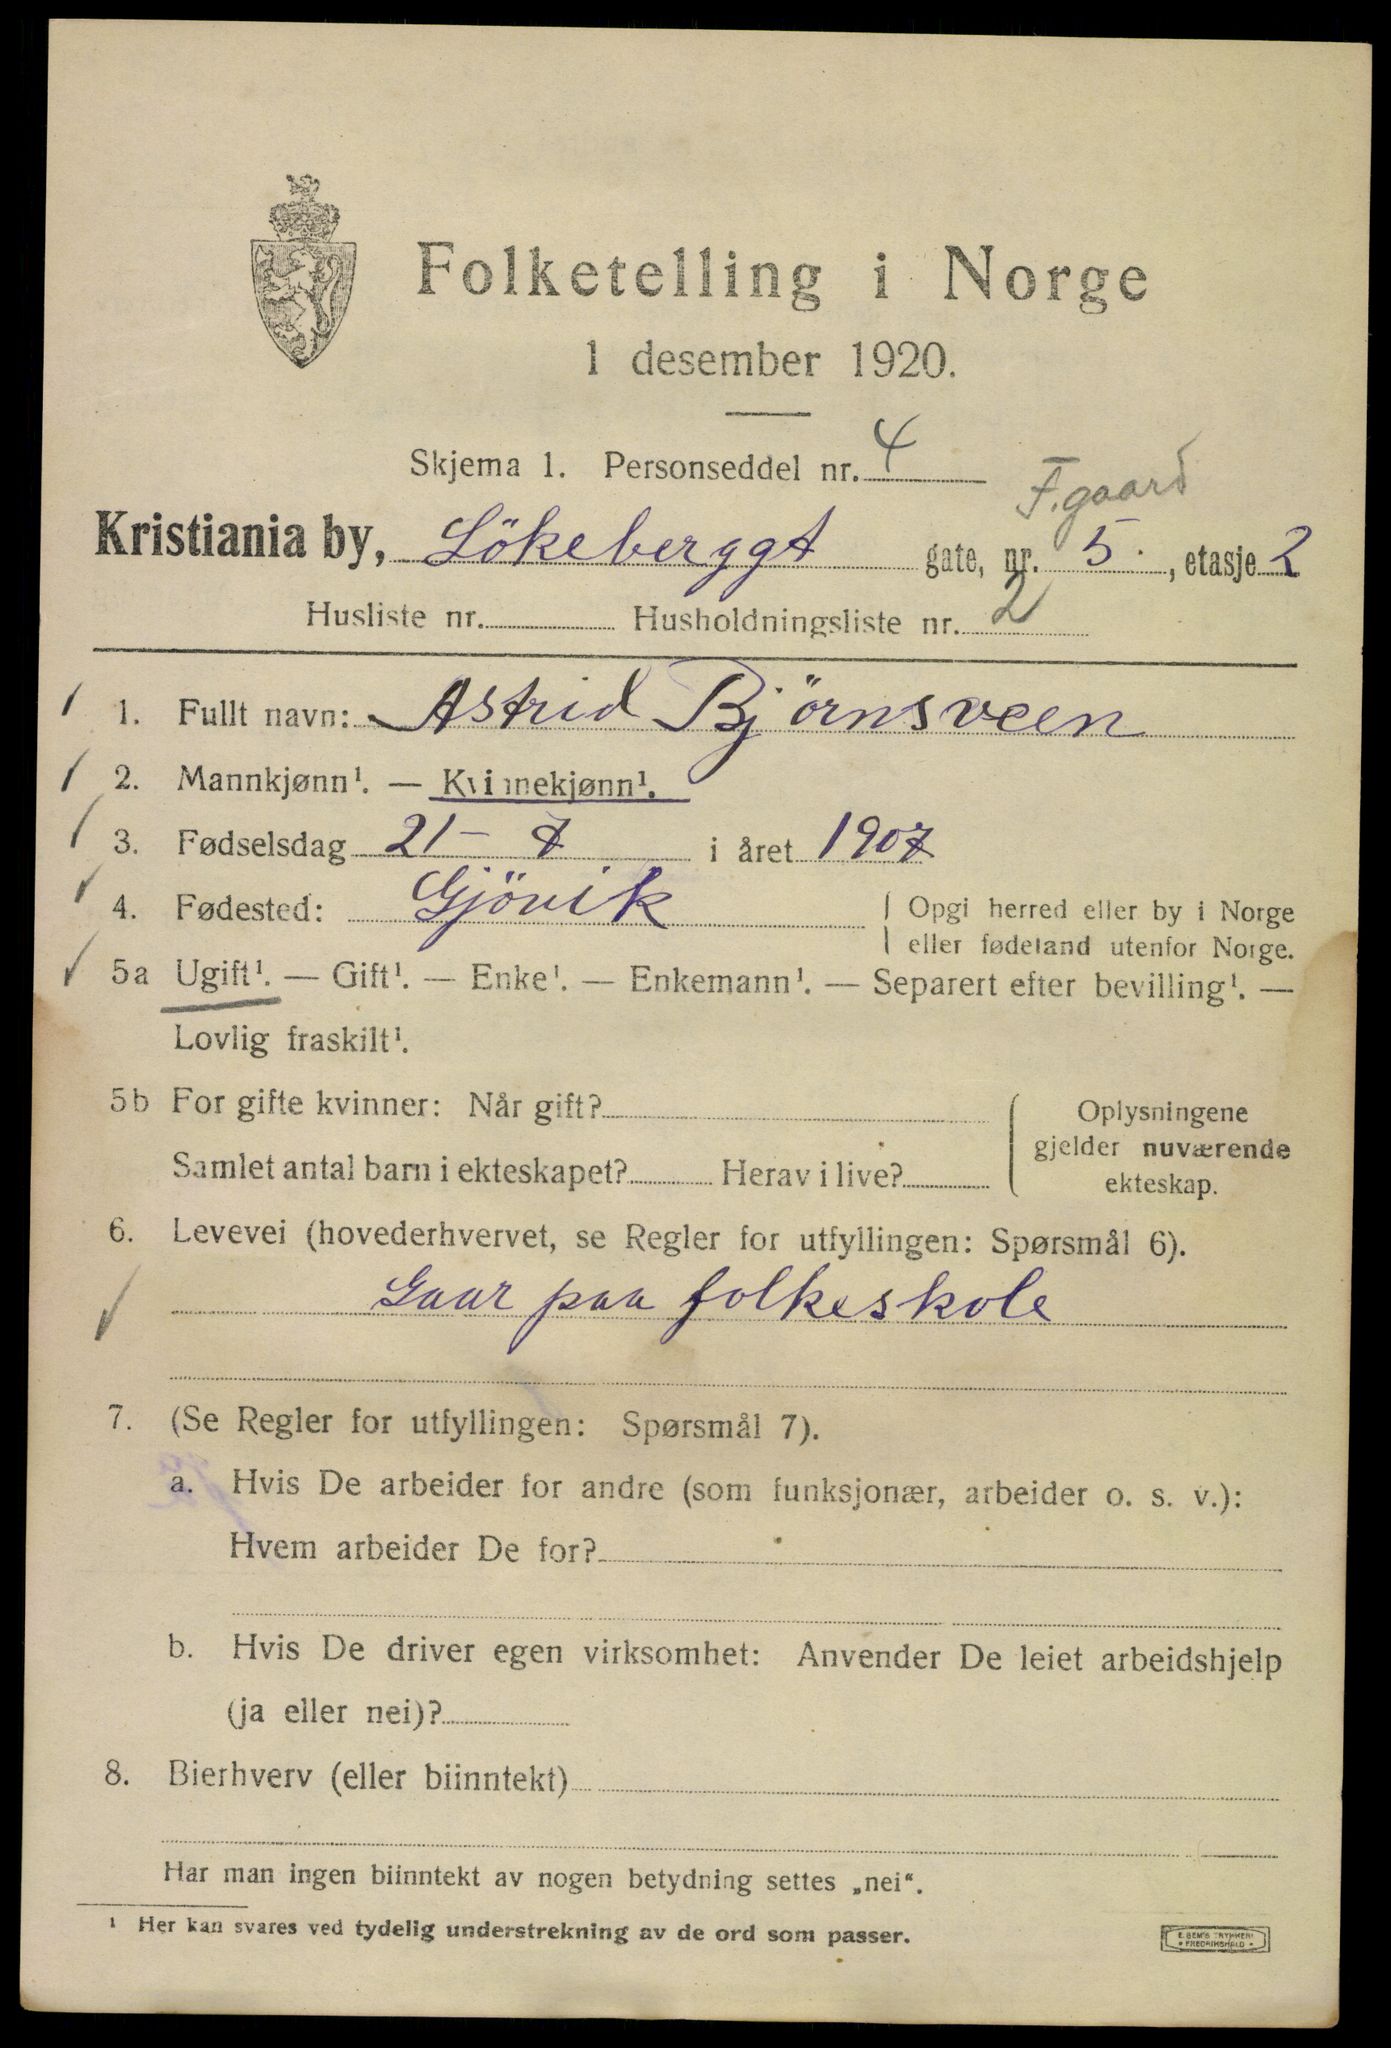 Folketelling i Norge
1 desember 1920.
Skjema 1. Personseddel nr. 4
F.gaard
Kristiania by, Lökeberggt gate, nr. 5. , etasje 2
Husliste nr. Husholdningsliste nr. 2
1. Fullt navn: Astrid Björnsveen
2. Mannkjønn¹. — Kvinnekjønn¹.
3. Fødselsdag 21 – 7 i året 1907
4. Fødested: Gjövik Opgi herred eller by i Norge
eller fødeland utenfor Norge.
5a Ugift¹. — Gift¹. — Enke¹. — Enkemann¹. — Separert efter bevilling¹. —
Lovlig fraskilt¹.
5b For gifte kvinner: Når gift? Oplysningene
gjelder nuværende
Samlet antal barn i ekteskapet? Herav i live? ekteskap.
6. Levevei (hovederhvervet, se Regler for utfyllingen: Spørsmål 6).
Gaar paa folkeskole
7. (Se Regler for utfyllingen: Spørsmål 7).
a. Hvis De arbeider for andre (som funksjonær, arbeider o. s. v.):
Hvem arbeider De for?
b. Hvis De driver egen virksomhet: Anvender De leiet arbeidshjelp
(ja eller nei)?
8. Bierhverv (eller biinntekt)
Har man ingen biinntekt av nogen betydning settes „nei“.
¹ Her kan svares ved tydelig understrekning av de ord som passer.
E. SEM'S TRYKKERI
• FREDRIKSHALD •